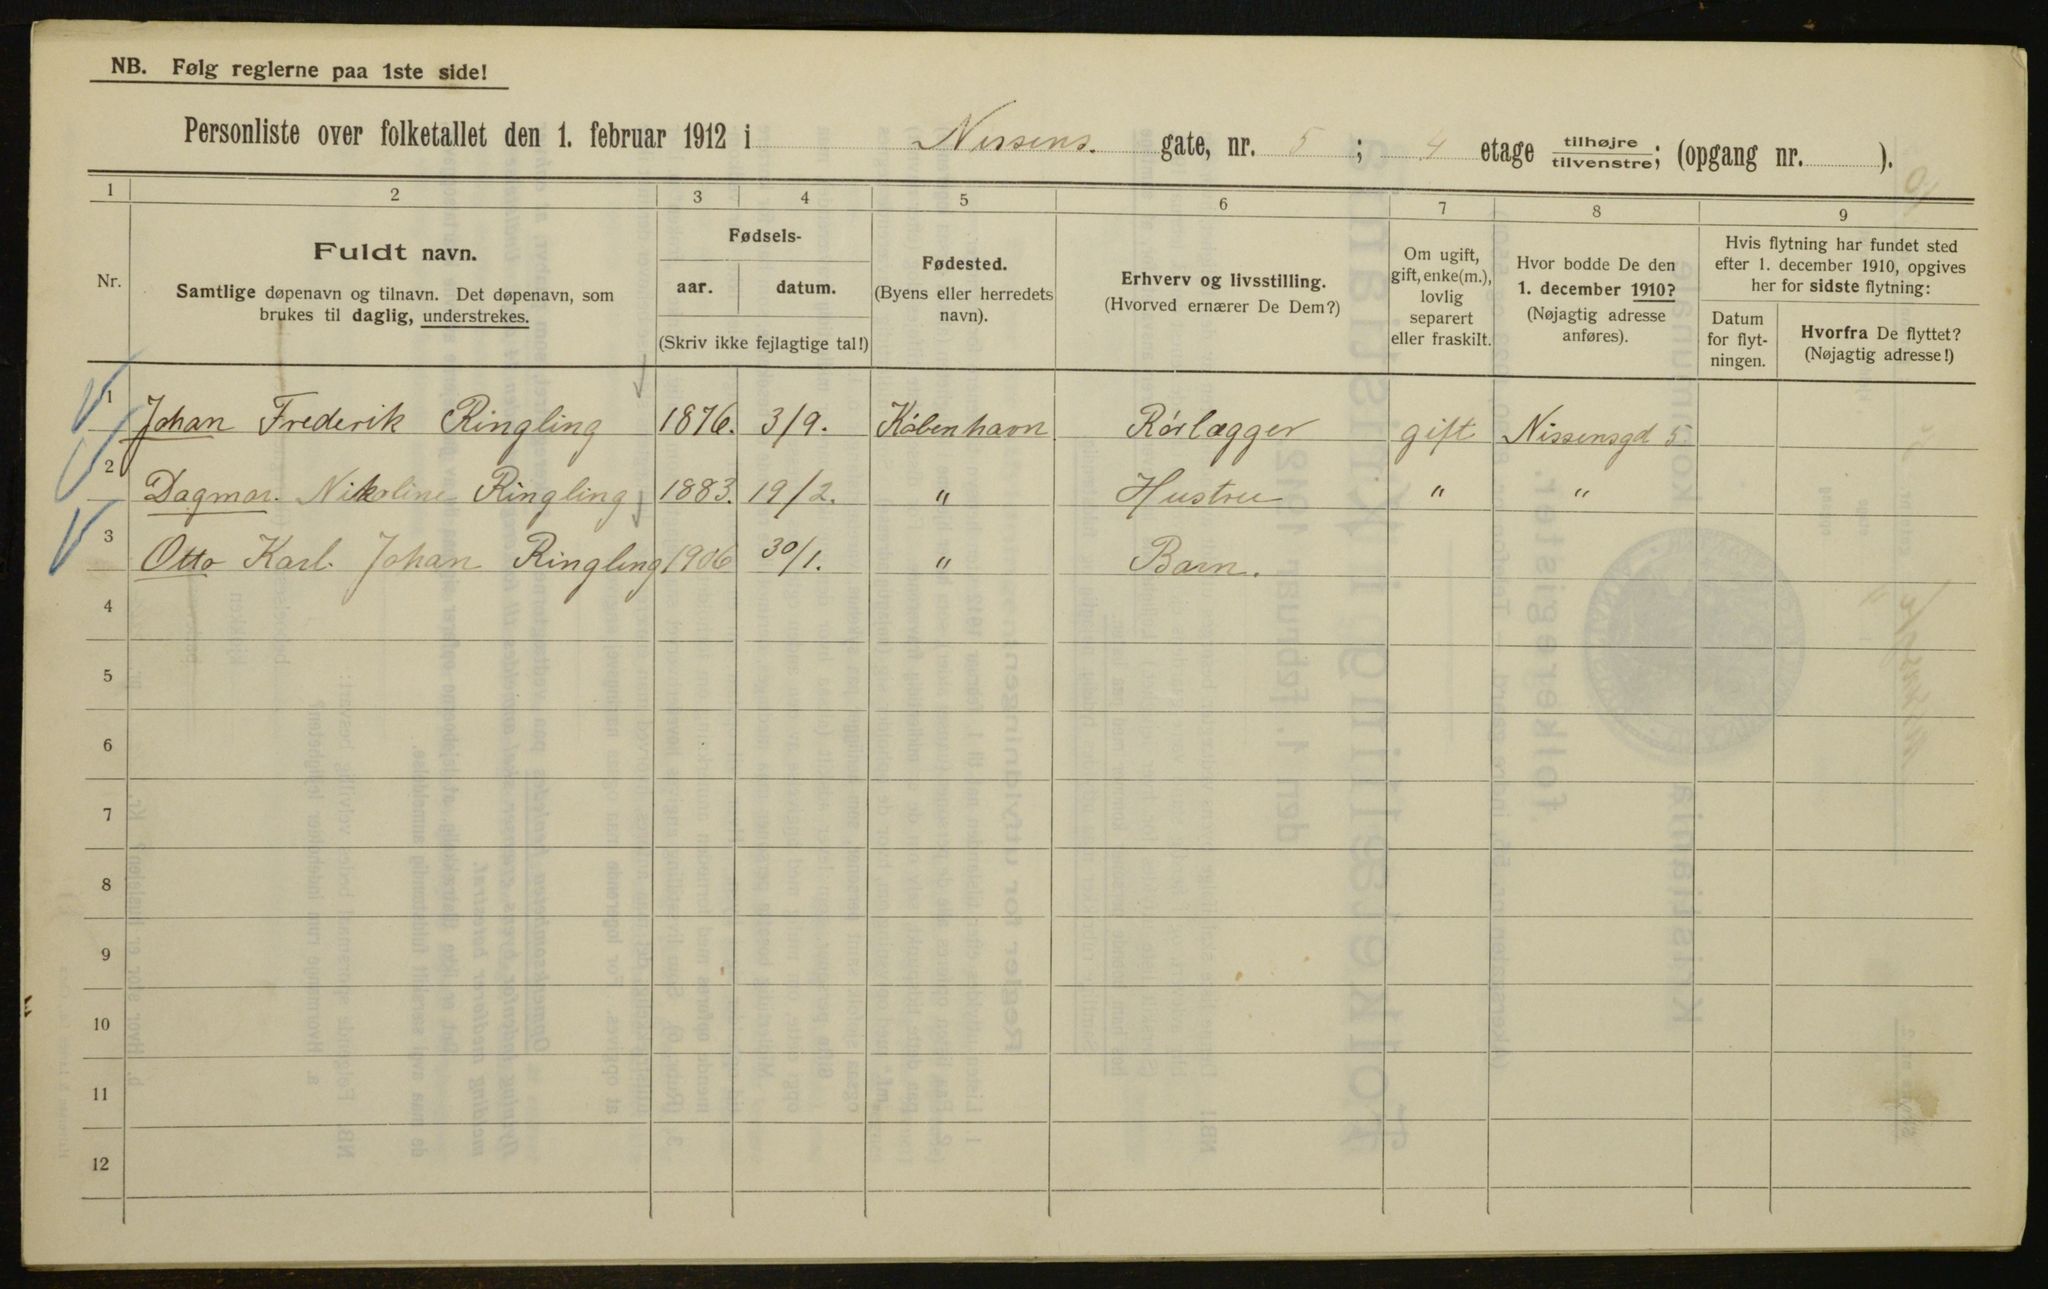 NB. Følg reglerne paa 1ste side!
Personliste over folketallet den 1. februar 1912 i Nissens gate, nr. 5; 4 etage tilhøjre tilvenstre; (opgang nr. ).
1 2 3 4 5 6 7 8 9
Nr.
Fuldt navn.
Samtlige døpenavn og tilnavn. Det døpenavn, som
brukes til daglig, understrekes.
Fødsels-
aar. datum.
(Skriv ikke fejlagtige tal!)
Fødested.
(Byens eller herredets
navn).
Erhverv og livsstilling.
(Hvorved ernærer De Dem?)
Om ugift,
gift, enke(m.),
lovlig
separert
eller fraskilt.
Hvor bodde De den
1. december 1910?
(Nøjagtig adresse
anføres).
Hvis flytning har fundet sted
efter 1. december 1910, opgives
her for sidste flytning:
Datum
for flyt-
ningen.
Hvorfra De flyttet?
(Nøjagtig adresse!)
1 Johan Frederik Ringling 1876. 3/9. København Rörlægger gift Nissensgd 5
2 Dagmar. Nikoline Ringling 1883. 19/2. " Hustru " "
3 Otto Karl. Johan Ringling 1906 30/1. " Barn.
4
5
6
7
8
9
10
11
12